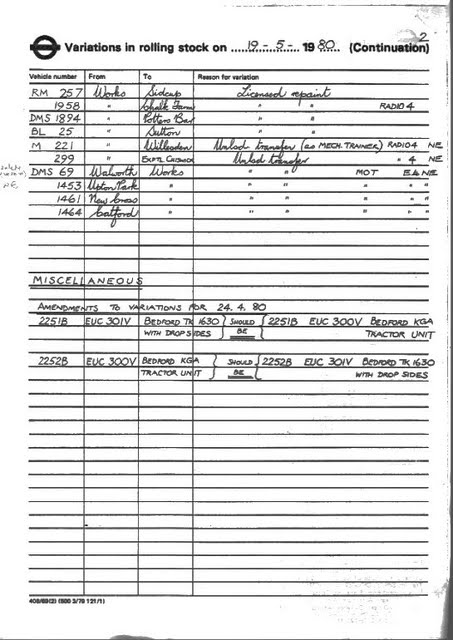 2
Variations in rolling stock on 19-5- 1980 (Continuation)
Vehicle number From To Reason for variation
RM 257 Works Sidcup Licensed repaint
1958 " Chalk Farm " " RADIO 4
DMS 1894 " Potters Bar " "
BL 25 " Sutton " "
M 221 " Willesden Unlsd transfer (as MECH. TRAINER) RADIO 4 NE
299 " EXPTL Unlsd transfer " 4 NE
DMS 69 Walworth Works " " MOT E4 NE
NE 1453 Upton Park " " " " " "
1461 New Cross " " " " " "
1464 Catford " " " " " "
MISCELLANEOUS
AMENDMENTS TO VARIATIONS FOR 24.4.80
2251B EUC 301V BEDFORD TK 1630 SHOULD 2251B EUC 300V BEDFORD KGA
WITH DROP SIDES BE TRACTOR UNIT
2252B EUC 300V BEDFORD KGA SHOULD 2252B EUC 301V BEDFORD TK 1630
TRACTOR UNIT BE WITH DROP SIDES
408/89(2) (500 3/70 121/1)